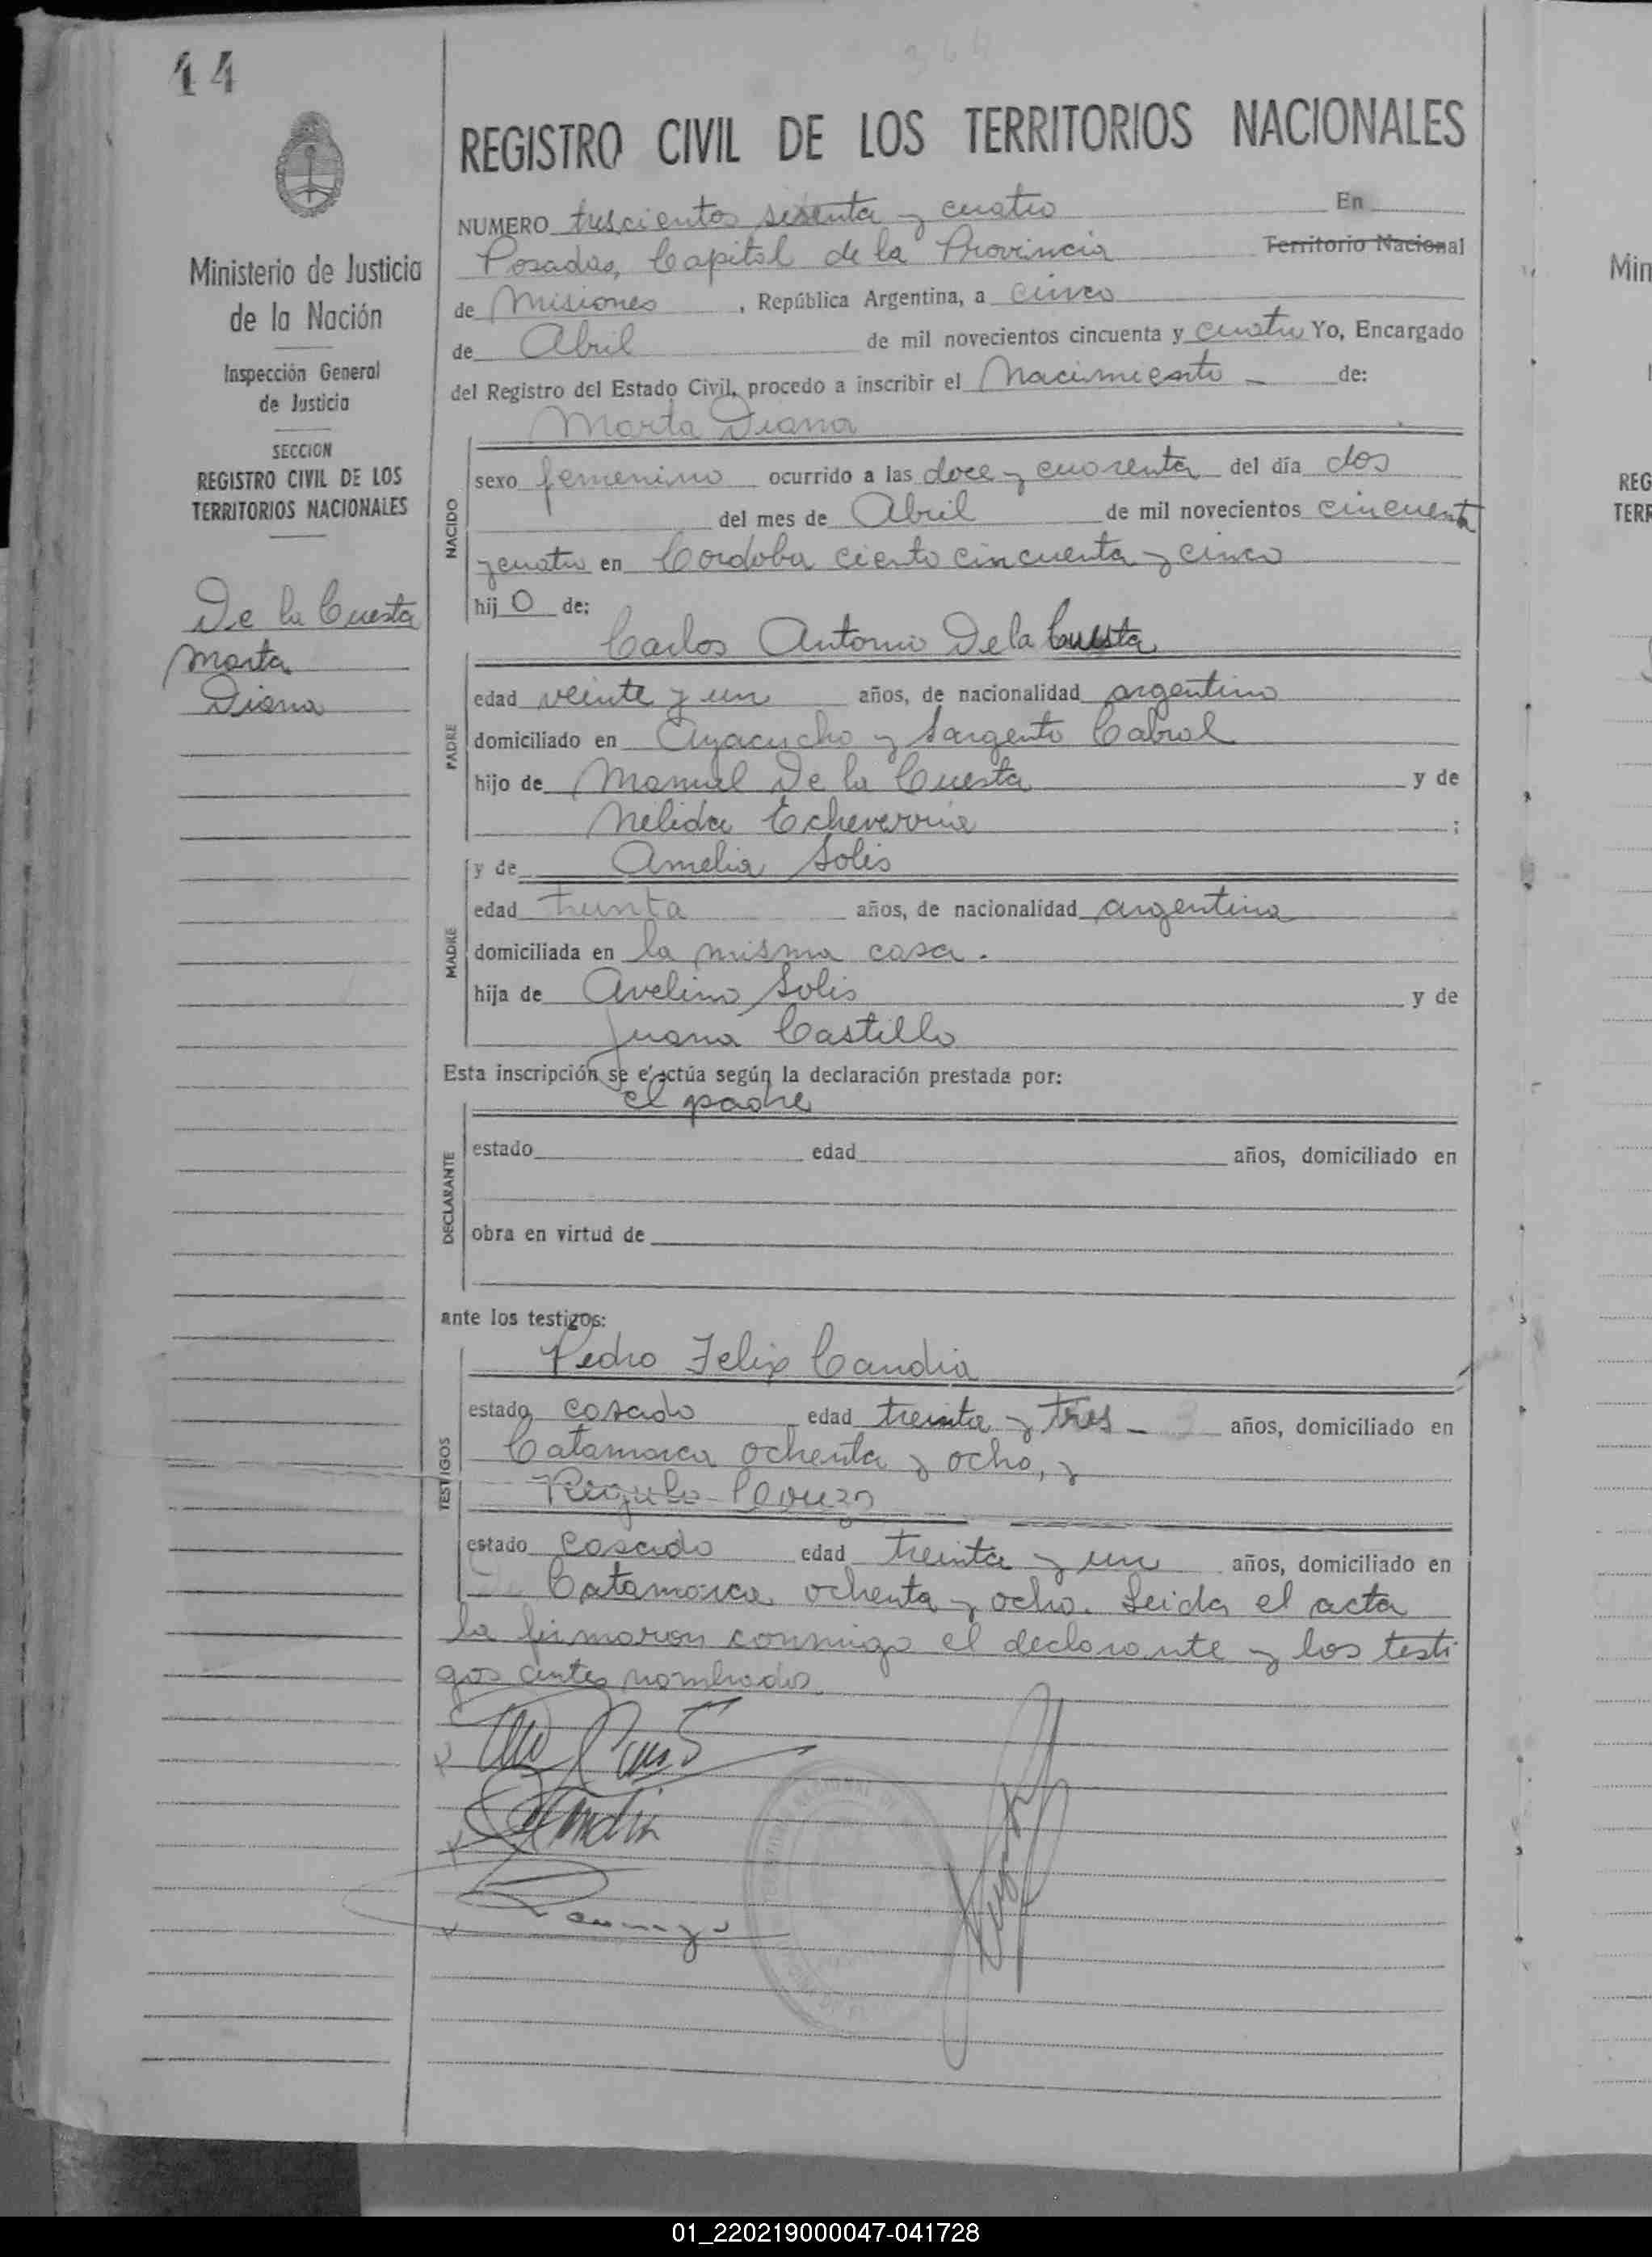 14
364
REGISTRO CIVIL DE LOS TERRITORIOS NACIONALES
Ministerio de Justicia
de la Nación
Inspección General
de Justicia
SECCION
REGISTRO CIVIL DE LOS
TERRITORIOS NACIONALES
De la Cuesta
Marta
Diana
NUMERO trescientos sesenta y cuatro En
Posadas, Capital de la Provincia Territorio Nacional
de Misiones, República Argentina, a cinco
de Abril de mil novecientos cincuenta y cuatro Yo, Encargado
del Registro del Estado Civil, procedo a inscribir el Nacimiento - de:
Marta Diana
NACIDO
sexo femenino ocurrido a las doce y cuarenta del día dos
del mes de Abril de mil novecientos cincuenta
y cuatro en Cordoba ciento cincuenta y cinco
hij o de:
Carlos Antonio De la Cuesta
PADRE
edad veinte y un años, de nacionalidad argentino
domiciliado en Ayacucho y Sargento Cabral
hijo de Manuel De la Cuesta y de
Nelida Echeverria ;
MADRE
y de Amelia Solis
edad treinta años, de nacionalidad argentina
domiciliada en la misma casa.
hija de Avelino Solis y de
Juana Castillo
Esta inscripción se efectúa según la declaración prestada por:
el padre
DECLARANTE
estado edad años, domiciliado en
obra en virtud de
ante los testigos:
TESTIGOS
Pedro Felix Candia
estado casado edad treinta y tres - años, domiciliado en
Catamarca ochenta y ocho, y
estado casado edad treinta y un años, domiciliado en
Catamarca ochenta y ocho. Leida el acta
la firmaron conmigo el declarante y los testi
gos antes nombrados.
01_220219000047-041728